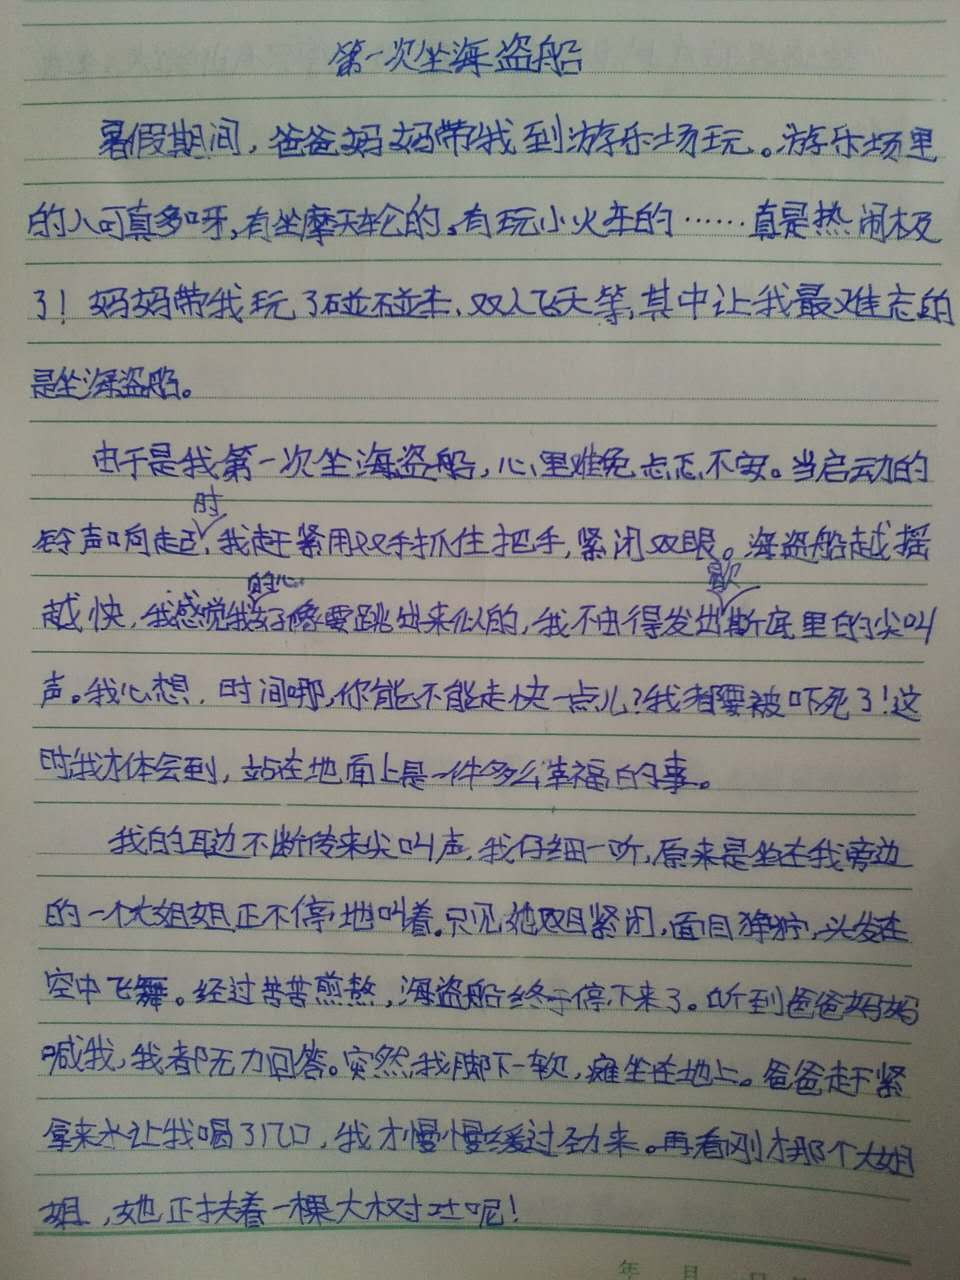 第一次坐海盗船
暑假期间,爸爸妈妈带我到游乐场玩。游乐场里
的人可真多呀,有坐摩天轮的,有玩小火车的……真是热闹极
了!妈妈带我玩了碰碰车、双人飞天等,其中让我最难忘的
是坐海盗船。
由于是我第一次坐海盗船,心里难免忐忑不安。当启动的
铃声响起时,我赶紧用双手抓住把手,紧闭双眼。海盗船越摇
越快,我感觉我的心好像要跳出来似的,我不由得发出歇斯底里的尖叫
声。我心想,时间哪,你能不能走快一点儿?我都要被吓死了!这
时我才体会到,站在地面上是一件多么幸福的事。
我的耳边不断传来尖叫声,我仔细一听,原来是坐在我旁边
的一个大姐姐正不停地叫着。只见她双目紧闭,面目狰狞,头发在
空中飞舞。经过苦苦煎熬,海盗船终于停下来了。听到爸爸妈妈
喊我,我都无力回答。突然,我脚下一软,瘫坐在地上。爸爸赶紧
拿来水让我喝了几口,我才慢慢缓过劲来。再看刚才那个大姐
姐,她正扶着一棵大树吐呢!
年 月 日